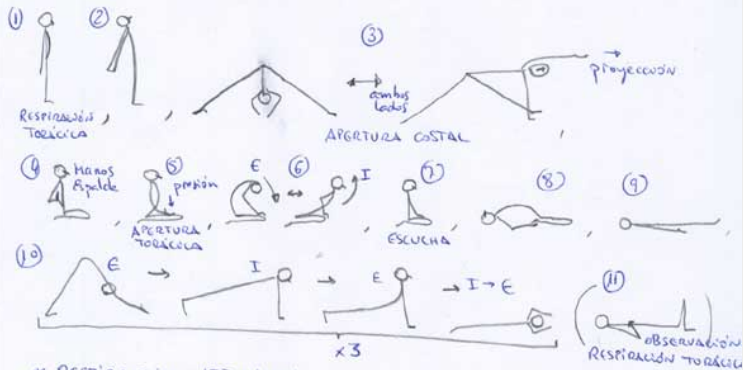 ① ② ③
RESPIRACIÓN TORÁCICA
ambos lados
proyección
APERTURA COSTAL
④ Manos Espalda
⑤ presión
APERTURA TORÁCICA
E ⑥ I
⑦
ESCUCHA
⑧ ⑨
⑩ E → I → E → I → E
x3
⑪
OBSERVACIÓN
RESPIRACIÓN TORÁCICA